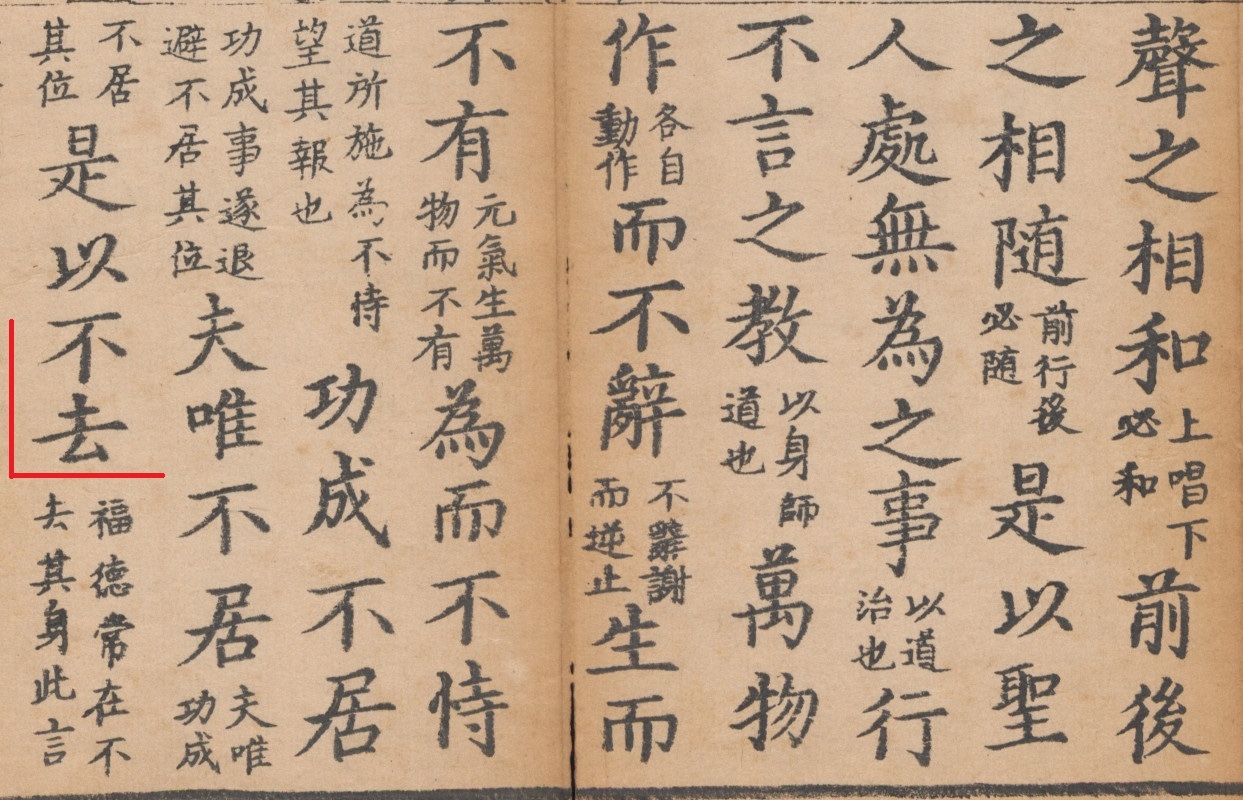 聲之相和上唱下必和前後
之相随前行後必随是以聖
人處無為之事以道治也行
不言之教以身師道也萬物
作各自動作而不辭不辭謝而逆止生而
不有元氣生萬物而不有為而不恃
道所施為不恃望其報也功成不居
功成事遂退避不居其位夫唯不居夫唯功成
不居其位是以不去福德常在不去其身此言